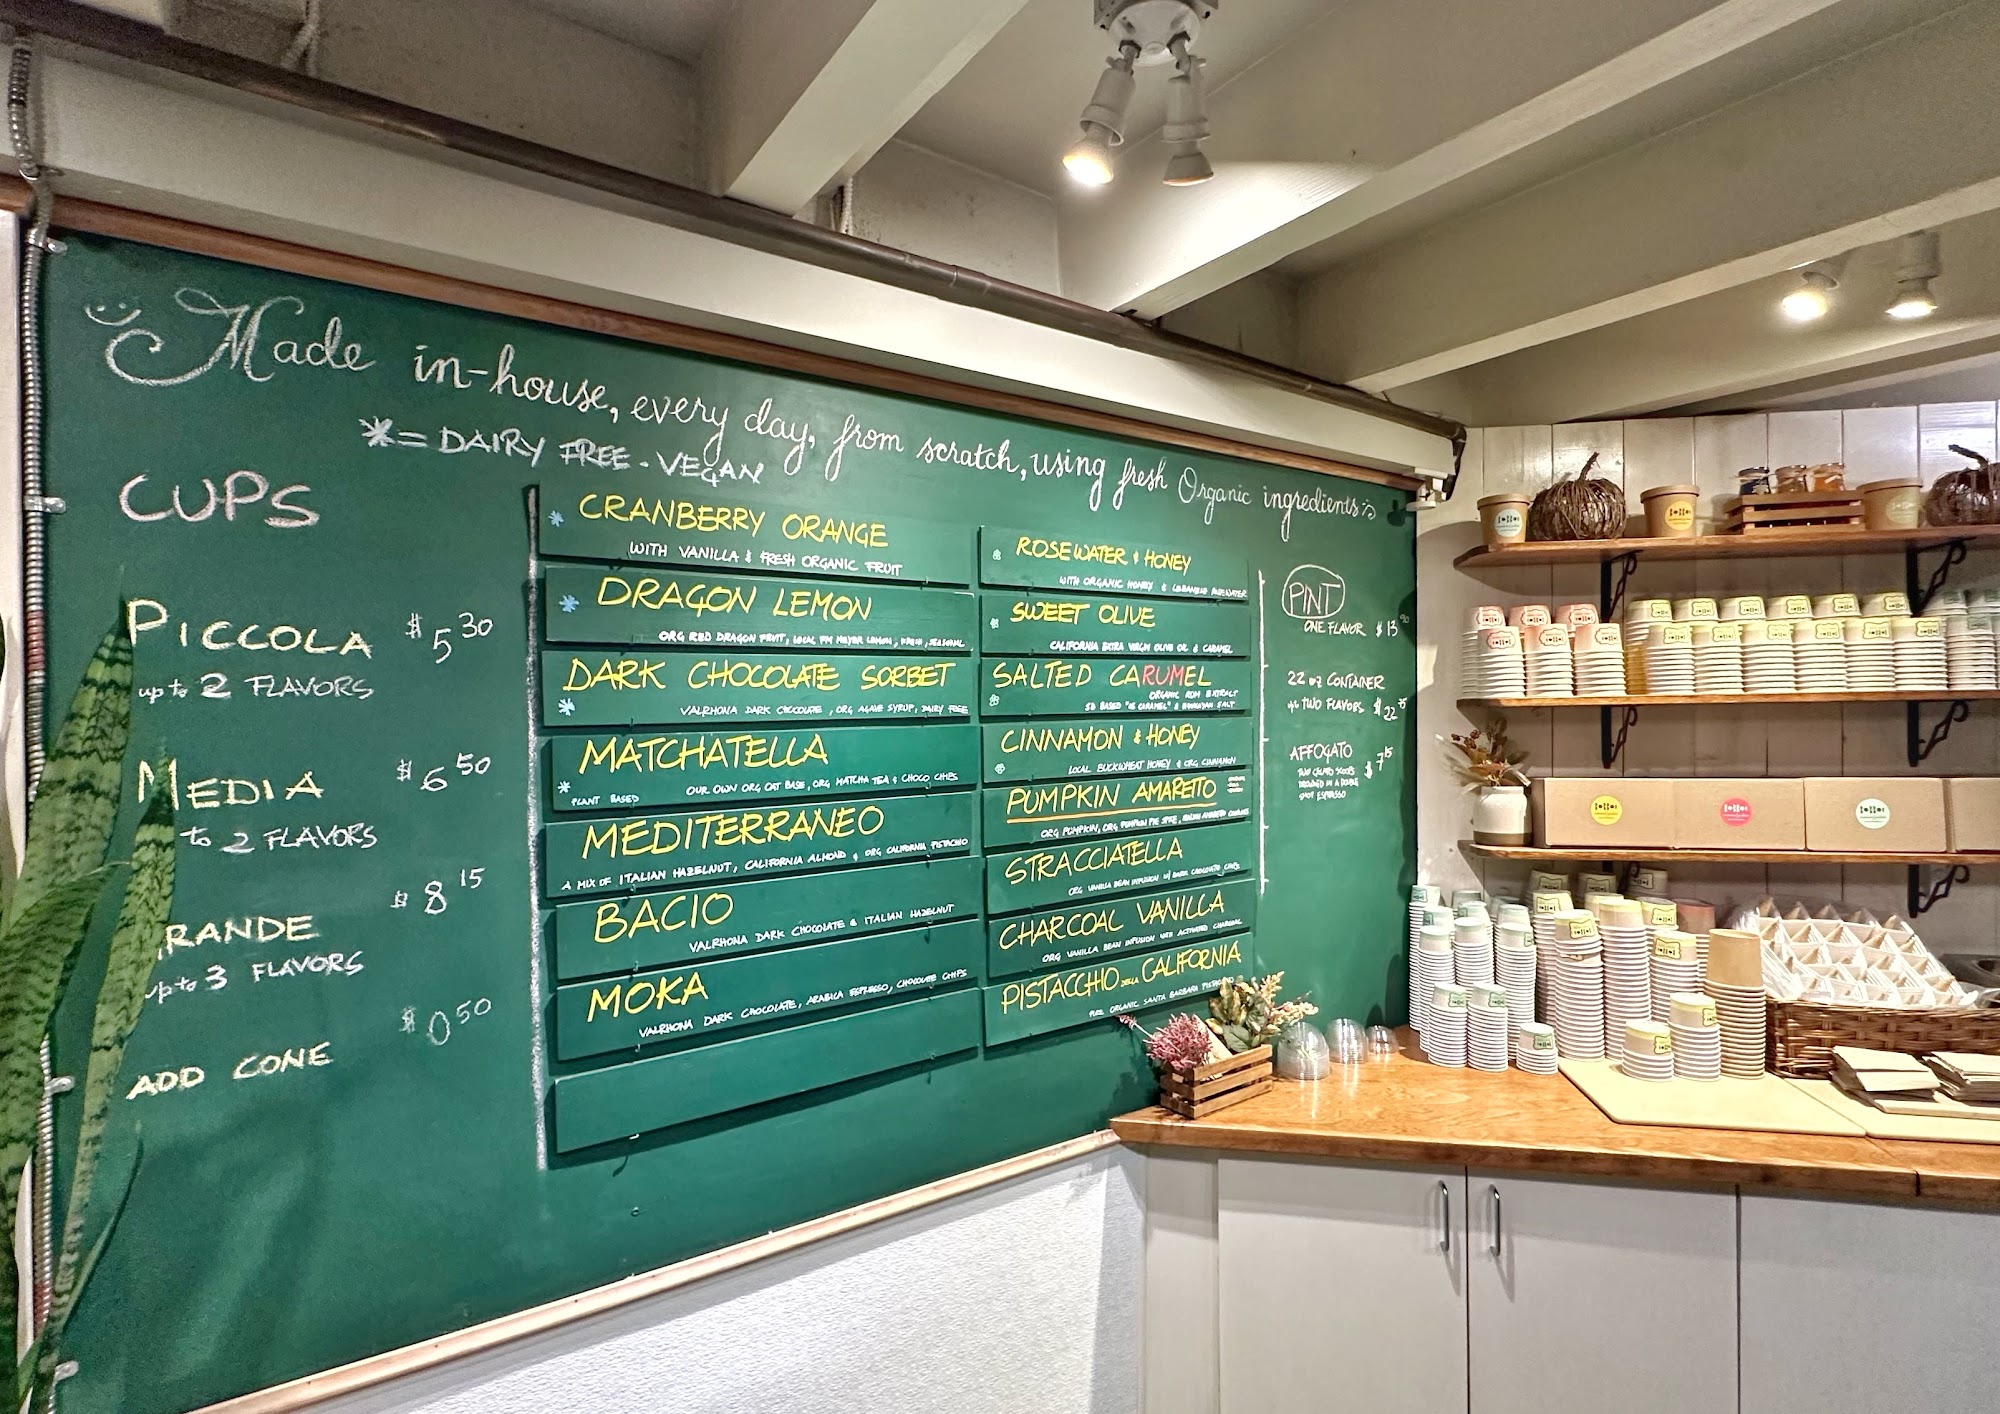 Made in-house, every day, from scratch, using fresh Organic ingredients
* = DAIRY FREE - VEGAN
CUPS
PICCOLA $5 30
up to 2 FLAVORS
MEDIA $6 50
to 2 FLAVORS
RANDE $8 15
up to 3 FLAVORS
ADD CONE $0 50
* CRANBERRY ORANGE
WITH VANILLA & FRESH ORGANIC FRUIT
* DRAGON LEMON
ORG RED DRAGON FRUIT, LOCAL FM MEYER LEMON, FRESH, SEASONAL
DARK CHOCOLATE SORBET
* VALRHONA DARK CHOCOLATE, ORG AGAVE SYRUP, DAIRY FREE
MATCHATELLA
* PLANT BASED OUR OWN ORG OAT BASE, ORG MATCHA TEA & CHOCO CHIPS
MEDITERRANEO
A MIX OF ITALIAN HAZELNUT, CALIFORNIA ALMOND & ORG CALIFORNIA PISTACHIO
BACIO
VALRHONA DARK CHOCOLATE & ITALIAN HAZELNUT
MOKA
VALRHONA DARK CHOCOLATE, ARABICA ESPRESSO, CHOCOLATE CHIPS
ROSEWATER & HONEY
WITH ORGANIC HONEY & LEBANESE ROSEWATER
SWEET OLIVE
CALIFORNIA EXTRA VIRGIN OLIVE OIL & CARAMEL
SALTED CARUMEL
ORGANIC RUM EXTRACT
CARAMEL" & HAWAIIAN SALT
CINNAMON & HONEY
LOCAL BUCKWHEAT HONEY & ORG CINNAMON
PUMPKIN AMARETTO
ORG PUMPKIN, ORG PUMPKIN PIE SPICE, ITALIAN AMARETTO COOKIES
STRACCIATELLA
ORG VANILLA BEAN INFUSION W/ DARK CHOCOLATE CHIPS
CHARCOAL VANILLA
ORG VANILLA BEAN INFUSION WITH ACTIVATED CHARCOAL
PISTACCHIO DELLA CALIFORNIA
PURE ORGANIC SANTA BARBARA PISTACHIO
PINT
ONE FLAVOR $13
22 oz CONTAINER
up to TWO FLAVORS $22 75
AFFOGATO $7 15
TWO GELATO SCOOPS
DROWNED IN A DOUBLE
SHOT ESPRESSO